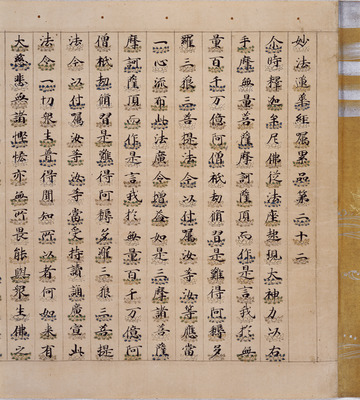 妙法蓮華経囑累品第二十二
尒時釋迦牟尼佛従法座起現大神力以右
手摩無量菩薩摩訶薩頂而作是言我於無
量百千万億阿僧祇劫脩習是難得阿耨多
羅三藐三菩提法今以付囑汝等汝等應當
一心流布此法廣令增益如是三摩諸菩薩
摩訶薩頂而作是言我於無量百千万億阿
僧祇劫脩習是難得阿耨多羅三藐三菩提
法今以付囑汝等汝等當受持讀誦廣宣此
法令一切衆生普得聞知所以者何如来有
大慈悲無諸慳悋亦無所畏能與衆生佛之